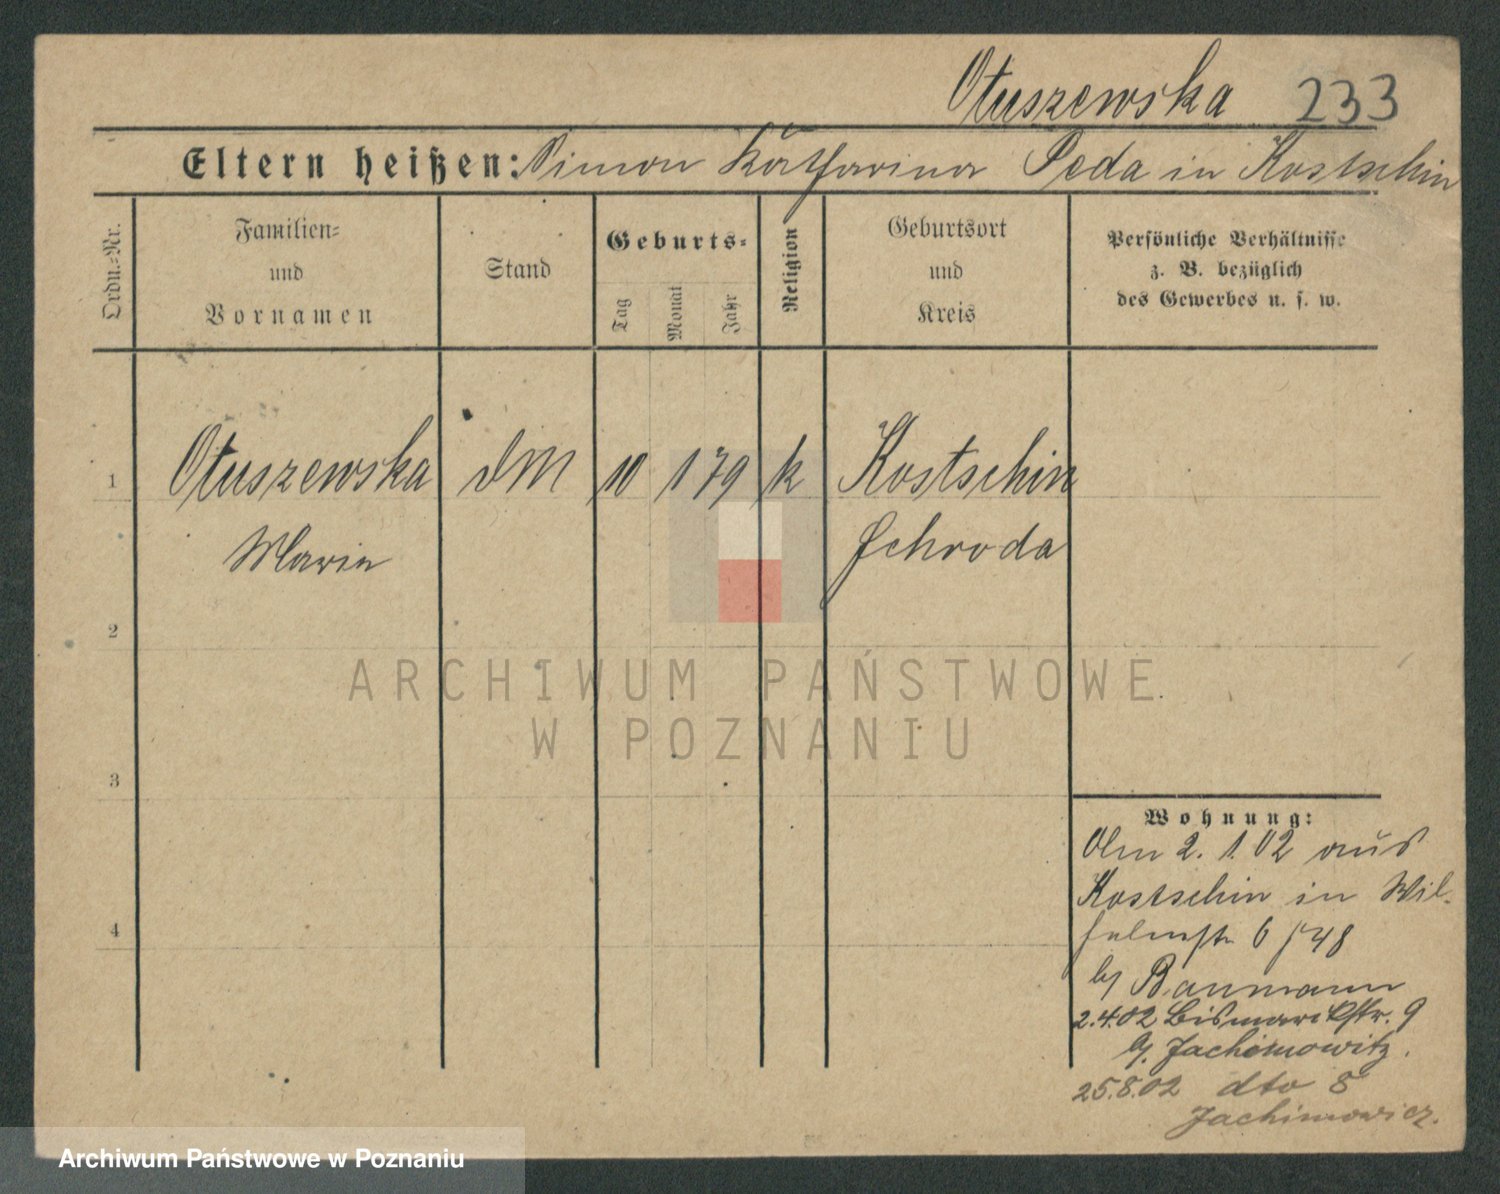 Otuszewska 233
Eltern heißen: Simon Katharina Peda in Kostschin
Ordn.-Nr.
Familien-
und
Vornamen
Stand
Geburts-
Tag
Monat
Jahr
Religion
Geburtsort
und
Kreis
Persönliche Verhältnisse
z. B. bezüglich
des Gewerbes u. s. w.
1 Otuszewska dM 10 1 79 k Kostschin
Marie Schroda
2
3
4
Wohnung:
2. 1. 02 aus
Kostschin in Wil-
helmstr 6
bj Baumann
2.4.02 Bismarckstr. 9
bj. Jachimowitz.
25.8.02 dto 8
Jachimowicz.
ARCHIWUM PAŃSTWOWE
W POZNANIU
Archiwum Państwowe w Poznaniu